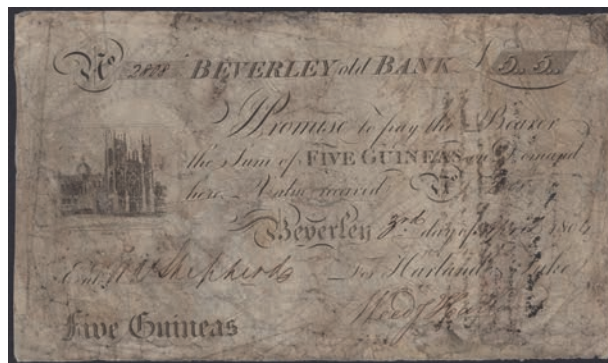 No 2808 BEVERLEY old BANK £ 5..5..
I Promise to pay the Bearer
the Sum of FIVE GUINEAS on Demand
here Value received No
Beverley 3rd day of 1804
Entd Shepherd For Harland Lake
Five Guineas